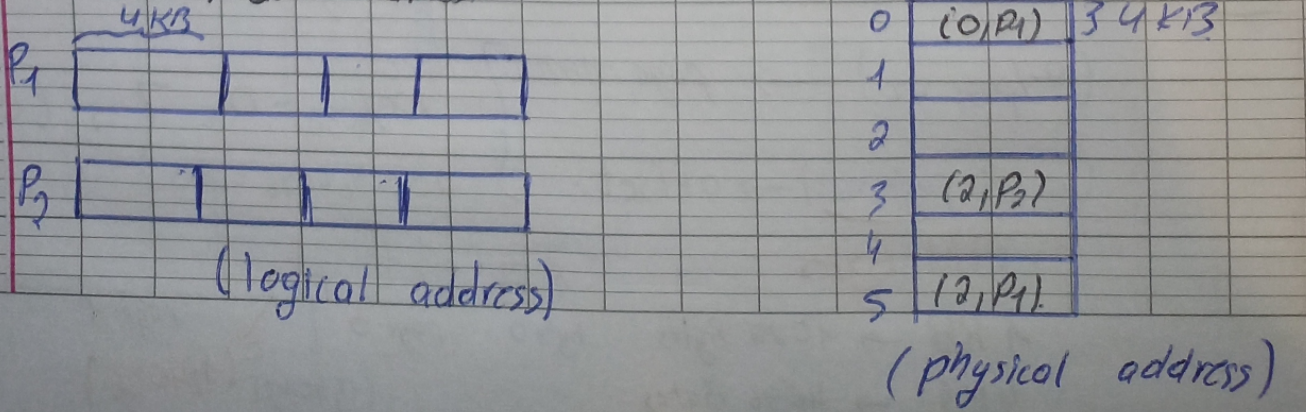 4KB
P1
P2
(logical address)
0 (0,P1) } 4KB
1
2
3 (2,P2)
4
5 (2,P1).
(physical address)